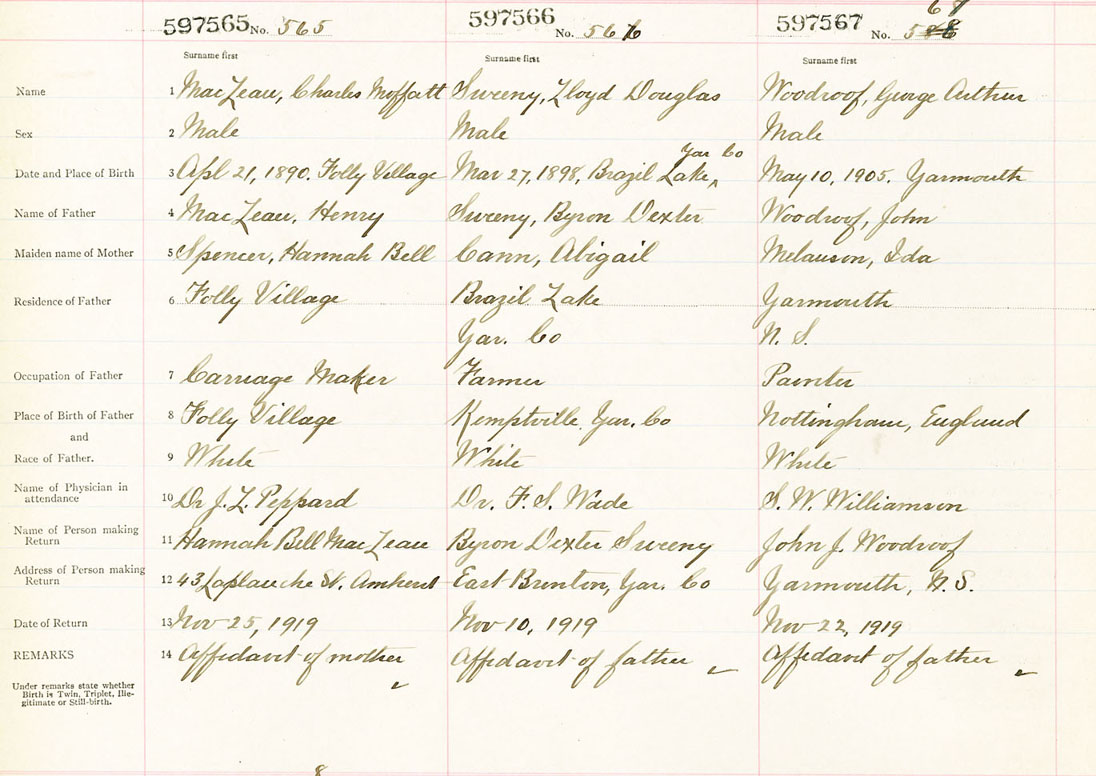 597565 No. 565 597566 No. 566 597567 No. 567
Surname first Surname first Surname first
Name 1 MacLean, Charles Moffatt Sweeny, Lloyd Douglas Woodroof, George Arthur
Sex 2 Male Male Male
Yar Co
Date and Place of Birth 3 Apl 21, 1890. Folly Village Mar 27, 1898, Brazil Lake May 10, 1905. Yarmouth
Name of Father 4 MacLean, Henry Sweeny, Byron Dexter Woodroof, John
Maiden name of Mother 5 Spencer, Hannah Bell Cann, Abigail Melanson, Ida
Residence of Father 6 Folly Village Brazil Lake Yarmouth
Yar. Co N. S.
Occupation of Father 7 Carriage Maker Farmer Painter
Place of Birth of Father 8 Folly Village Kemptville, Yar. Co Nottingham, England
and
Race of Father. 9 White White White
Name of Physician in
attendance 10 Dr J. L. Peppard Dr. F. S. Wade S. W. Williamson
Name of Person making
Return 11 Hannah Bell MacLean Byron Dexter Sweeny John J. Woodroof
Address of Person making
Return 12 43 Laplanche St. Amherst East Brenton, Yar. Co Yarmouth, N. S.
Date of Return 13 Nov 25, 1919 Nov 10, 1919 Nov 22, 1919
REMARKS 14 Affidavit of mother Affidavit of father Affidavit of father
Under remarks state whether
Birth is Twin, Triplet, Ille-
gitimate or Still-birth.
8